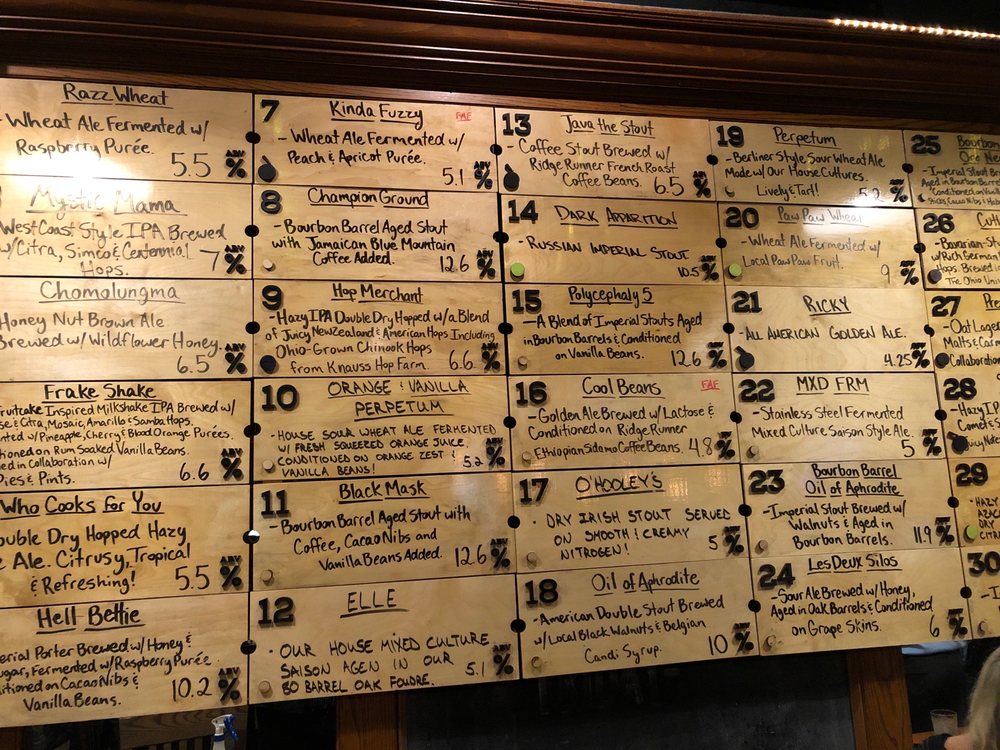 Razz Wheat
- Wheat Ale Fermented w/
Raspberry Purée.
5.5 ABV %
Mystic Mama
West Coast Style IPA Brewed
w/Citra, Simco & Centennial
Hops.
7 ABV %
Chomolungma
Honey Nut Brown Ale
Brewed w/ Wildflower Honey.
6.5 ABV %
Frake Shake
Fruitcake Inspired Milkshake IPA Brewed w/
& Citra, Mosaic, Amarillo & Samba Hops.
w/ Pineapple, Cherry & Blood Orange Purées.
on Rum Soaked Vanilla Beans.
in Collaboration w/
Pies & Pints.
6.6 ABV %
Who Cooks for You
Double Dry Hopped Hazy
Ale. Citrusy, Tropical
& Refreshing!
5.5 ABV %
Hell Bettie
Porter Brewed w/ Honey &
Fermented w/ Raspberry Purée
on Cacao Nibs &
Vanilla Beans.
10.2 ABV %
7
Kinda Fuzzy
FAF
- Wheat Ale Fermented w/
Peach & Apricot Purée.
5.1 ABV %
8
Champion Ground
- Bourbon Barrel Aged Stout
with Jamaican Blue Mountain
Coffee Added.
12.6 ABV %
9
Hop Merchant
- Hazy IPA Double Dry Hopped w/ a Blend
of Juicy New Zealand & American Hops Including
Ohio-Grown Chinook Hops
from Knauss Hop Farm.
6.6 ABV %
10
ORANGE & VANILLA
PERPETUM
- HOUSE SOUR WHEAT ALE FERMENTED
W/ FRESH SQUEEZED ORANGE JUICE.
CONDITIONED ON ORANGE ZEST &
VANILLA BEANS!
5.2 ABV %
11
Black Mask
- Bourbon Barrel Aged Stout with
Coffee, Cacao Nibs and
Vanilla Beans Added.
12.6 ABV %
12
ELLE
- OUR HOUSE MIXED CULTURE
SAISON AGEN IN OUR
80 BARREL OAK FOUDRE.
5.1 ABV %
13
Java the Stout
- Coffee Stout Brewed w/
Ridge Runner French Roast
Coffee Beans.
6.5 ABV %
14
DARK APPARITION
- RUSSIAN IMPERIAL STOUT
10.5 ABV %
15
Polycephaly 5
- A Blend of Imperial Stouts Aged
in Bourbon Barrels & Conditioned
on Vanilla Beans.
12.6 ABV %
16
Cool Beans
FAF
- Golden Ale Brewed w/ Lactose &
Conditioned on Ridge Runner
Ethiopian Sidamo Coffee Beans.
4.8 ABV %
17
O'HOOLEY'S
- DRY IRISH STOUT SERVED
ON SMOOTH & CREAMY
NITROGEN!
5 ABV %
18
Oil of Aphrodite
- American Double Stout Brewed
w/ Local Black Walnuts & Belgian
Candi Syrup.
10 ABV %
19
Perpetum
- Berliner Style, Sour Wheat Ale
Made w/ Our House Cultures.
Lively & Tart!
5.2 ABV %
20
Paw Paw Wheat
- Wheat Ale Fermented w/
Local Paw Paw Fruit.
9 ABV %
21
RICKY
- ALL AMERICAN GOLDEN ALE.
4.25 ABV %
22
MXD FRM
- Stainless Steel Fermented
Mixed Culture Saison Style Ale.
5 ABV %
23
Bourbon Barrel
Oil of Aphrodite
- Imperial Stout Brewed w/
Walnuts & Aged in
Bourbon Barrels.
11.9 ABV %
24
Les Deux Silos
- Sour Ale Brewed w/ Honey,
Aged in Oak Barrels & Conditioned
on Grape Skins.
6 ABV %
25
Bourbon
- Imperial Stout
Aged in Bourbon
26
- Bavarian-
w/ Rich German
Hops. Brewed
The Ohio
27
- Oat Lager
Malts &
Collaboration
28
- Hazy
29
- HAZY
30